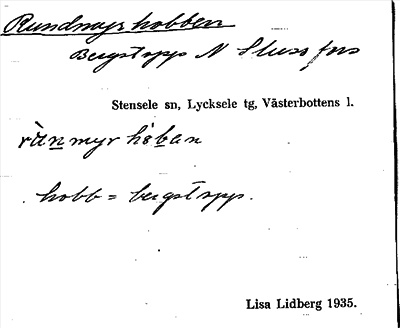 Rundmyrhobben
Bergstopp N Slussfors
Stensele sn, Lycksele tg, Västerbottens l.
hobb = bergstopp.
Lisa Lidberg 1935.